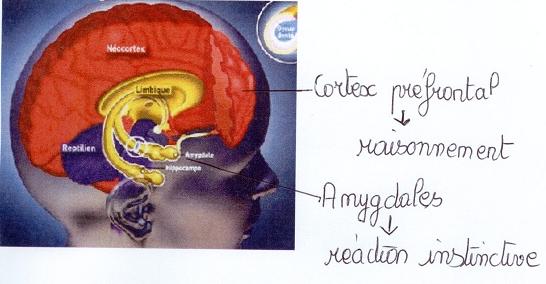 Néocortex
Limbique
Reptilien
Amygdale
hippocampe
Cortex préfrontal
raisonnement
Amygdales
réaction instinctive